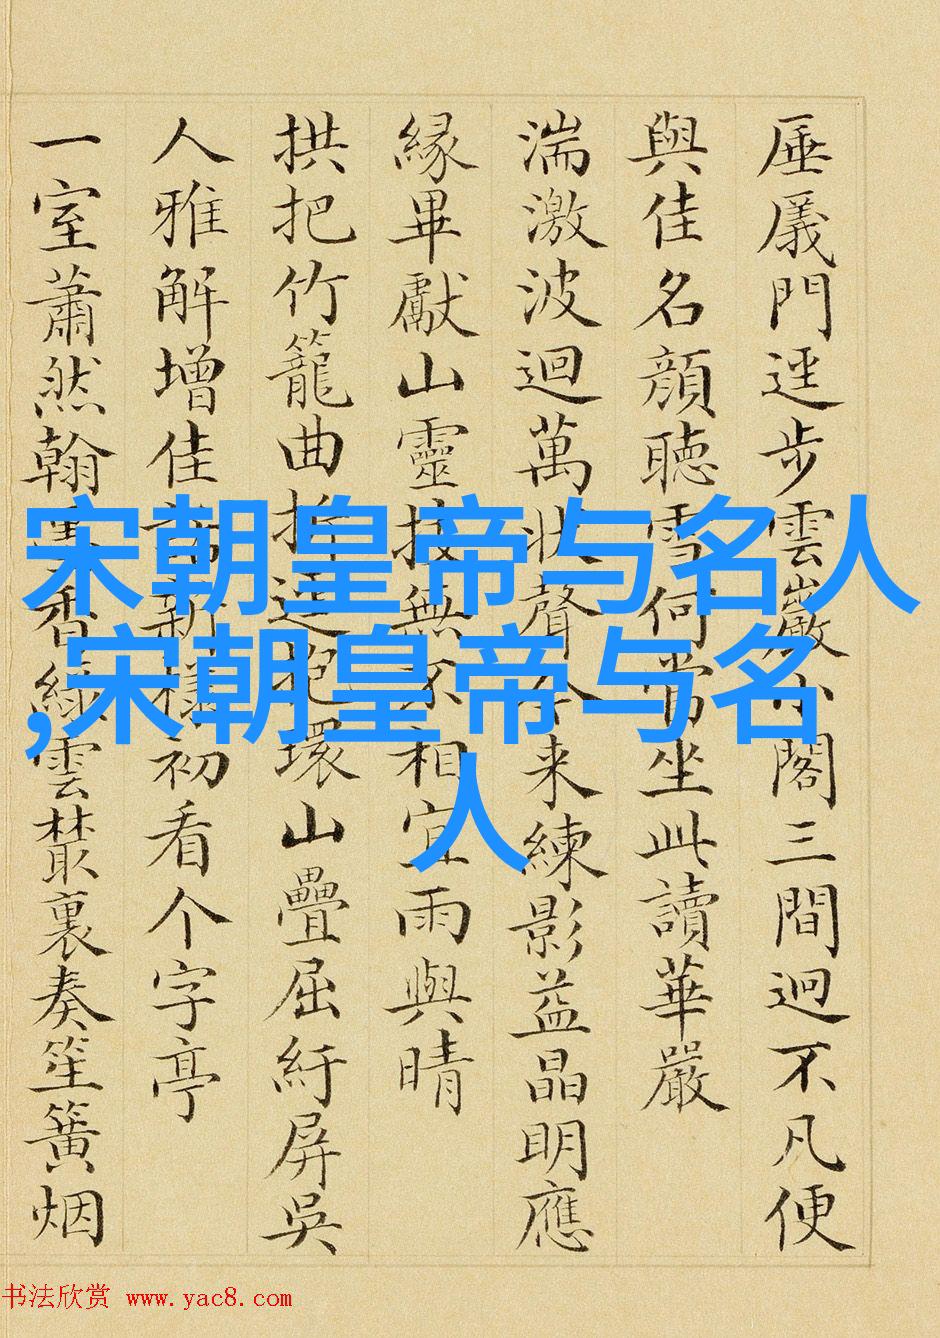 厜㕒門逕步雲巖小閣三間迥不凡便
與佳名顏聽雪何當坐此讀華嚴
湍激波迴萬狀聲来練影益晶明應
緣畢獻山靈技無不相宜雨與晴
拱把竹籠曲折抱環山疊屈紆屏吳
人雅解增佳話新樣初看个字亭
一室蕭然翰墨香綠雲裏奏笙簧烟
宋朝皇帝与名人
,宋朝皇帝与名
人
书法欣赏 www.yac8.com